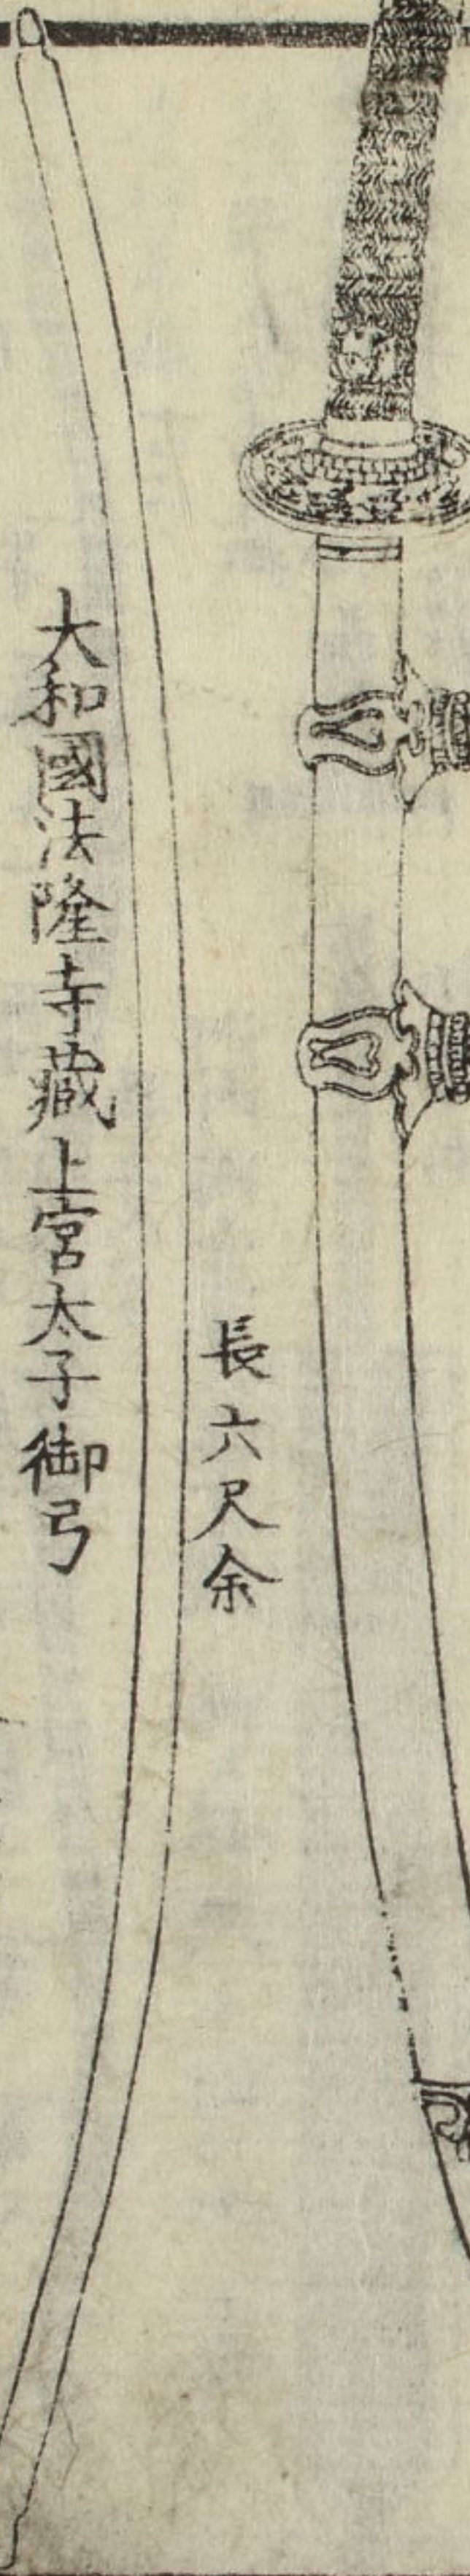 長六尺余
大和國法隆寺藏上宮太子御弓